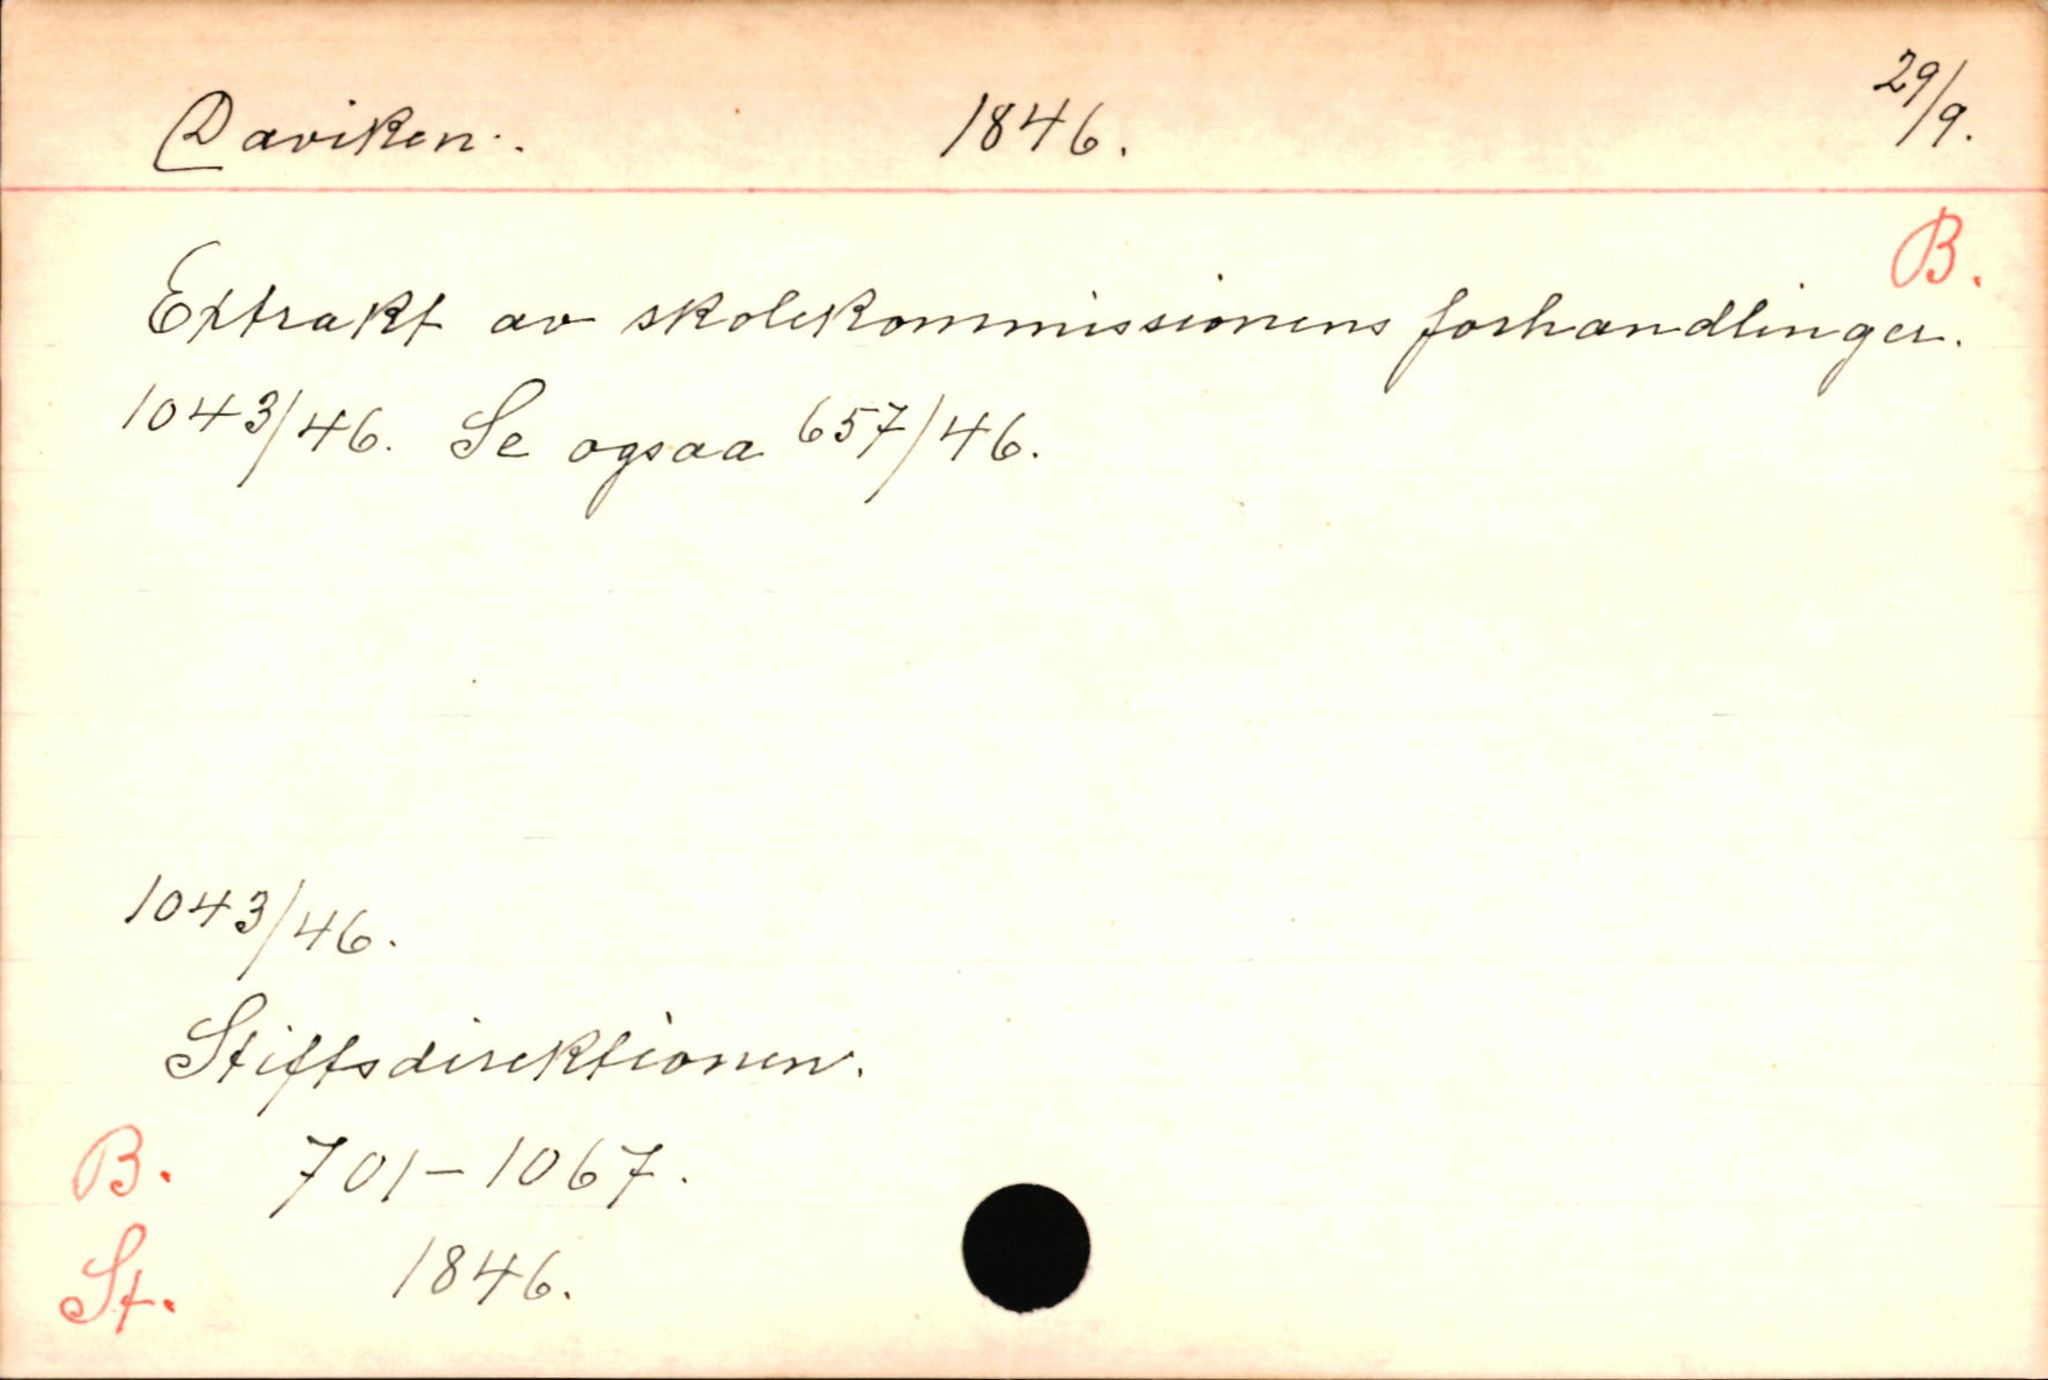 Daviken. 1846. 29/9.
B.
Extrakt av skolekommissionens forhandlinger.
1043/46. Se ogsaa 657/46.
1043/46.
Stiftsdirektionen.
B. 701-1067.
St. 1846.